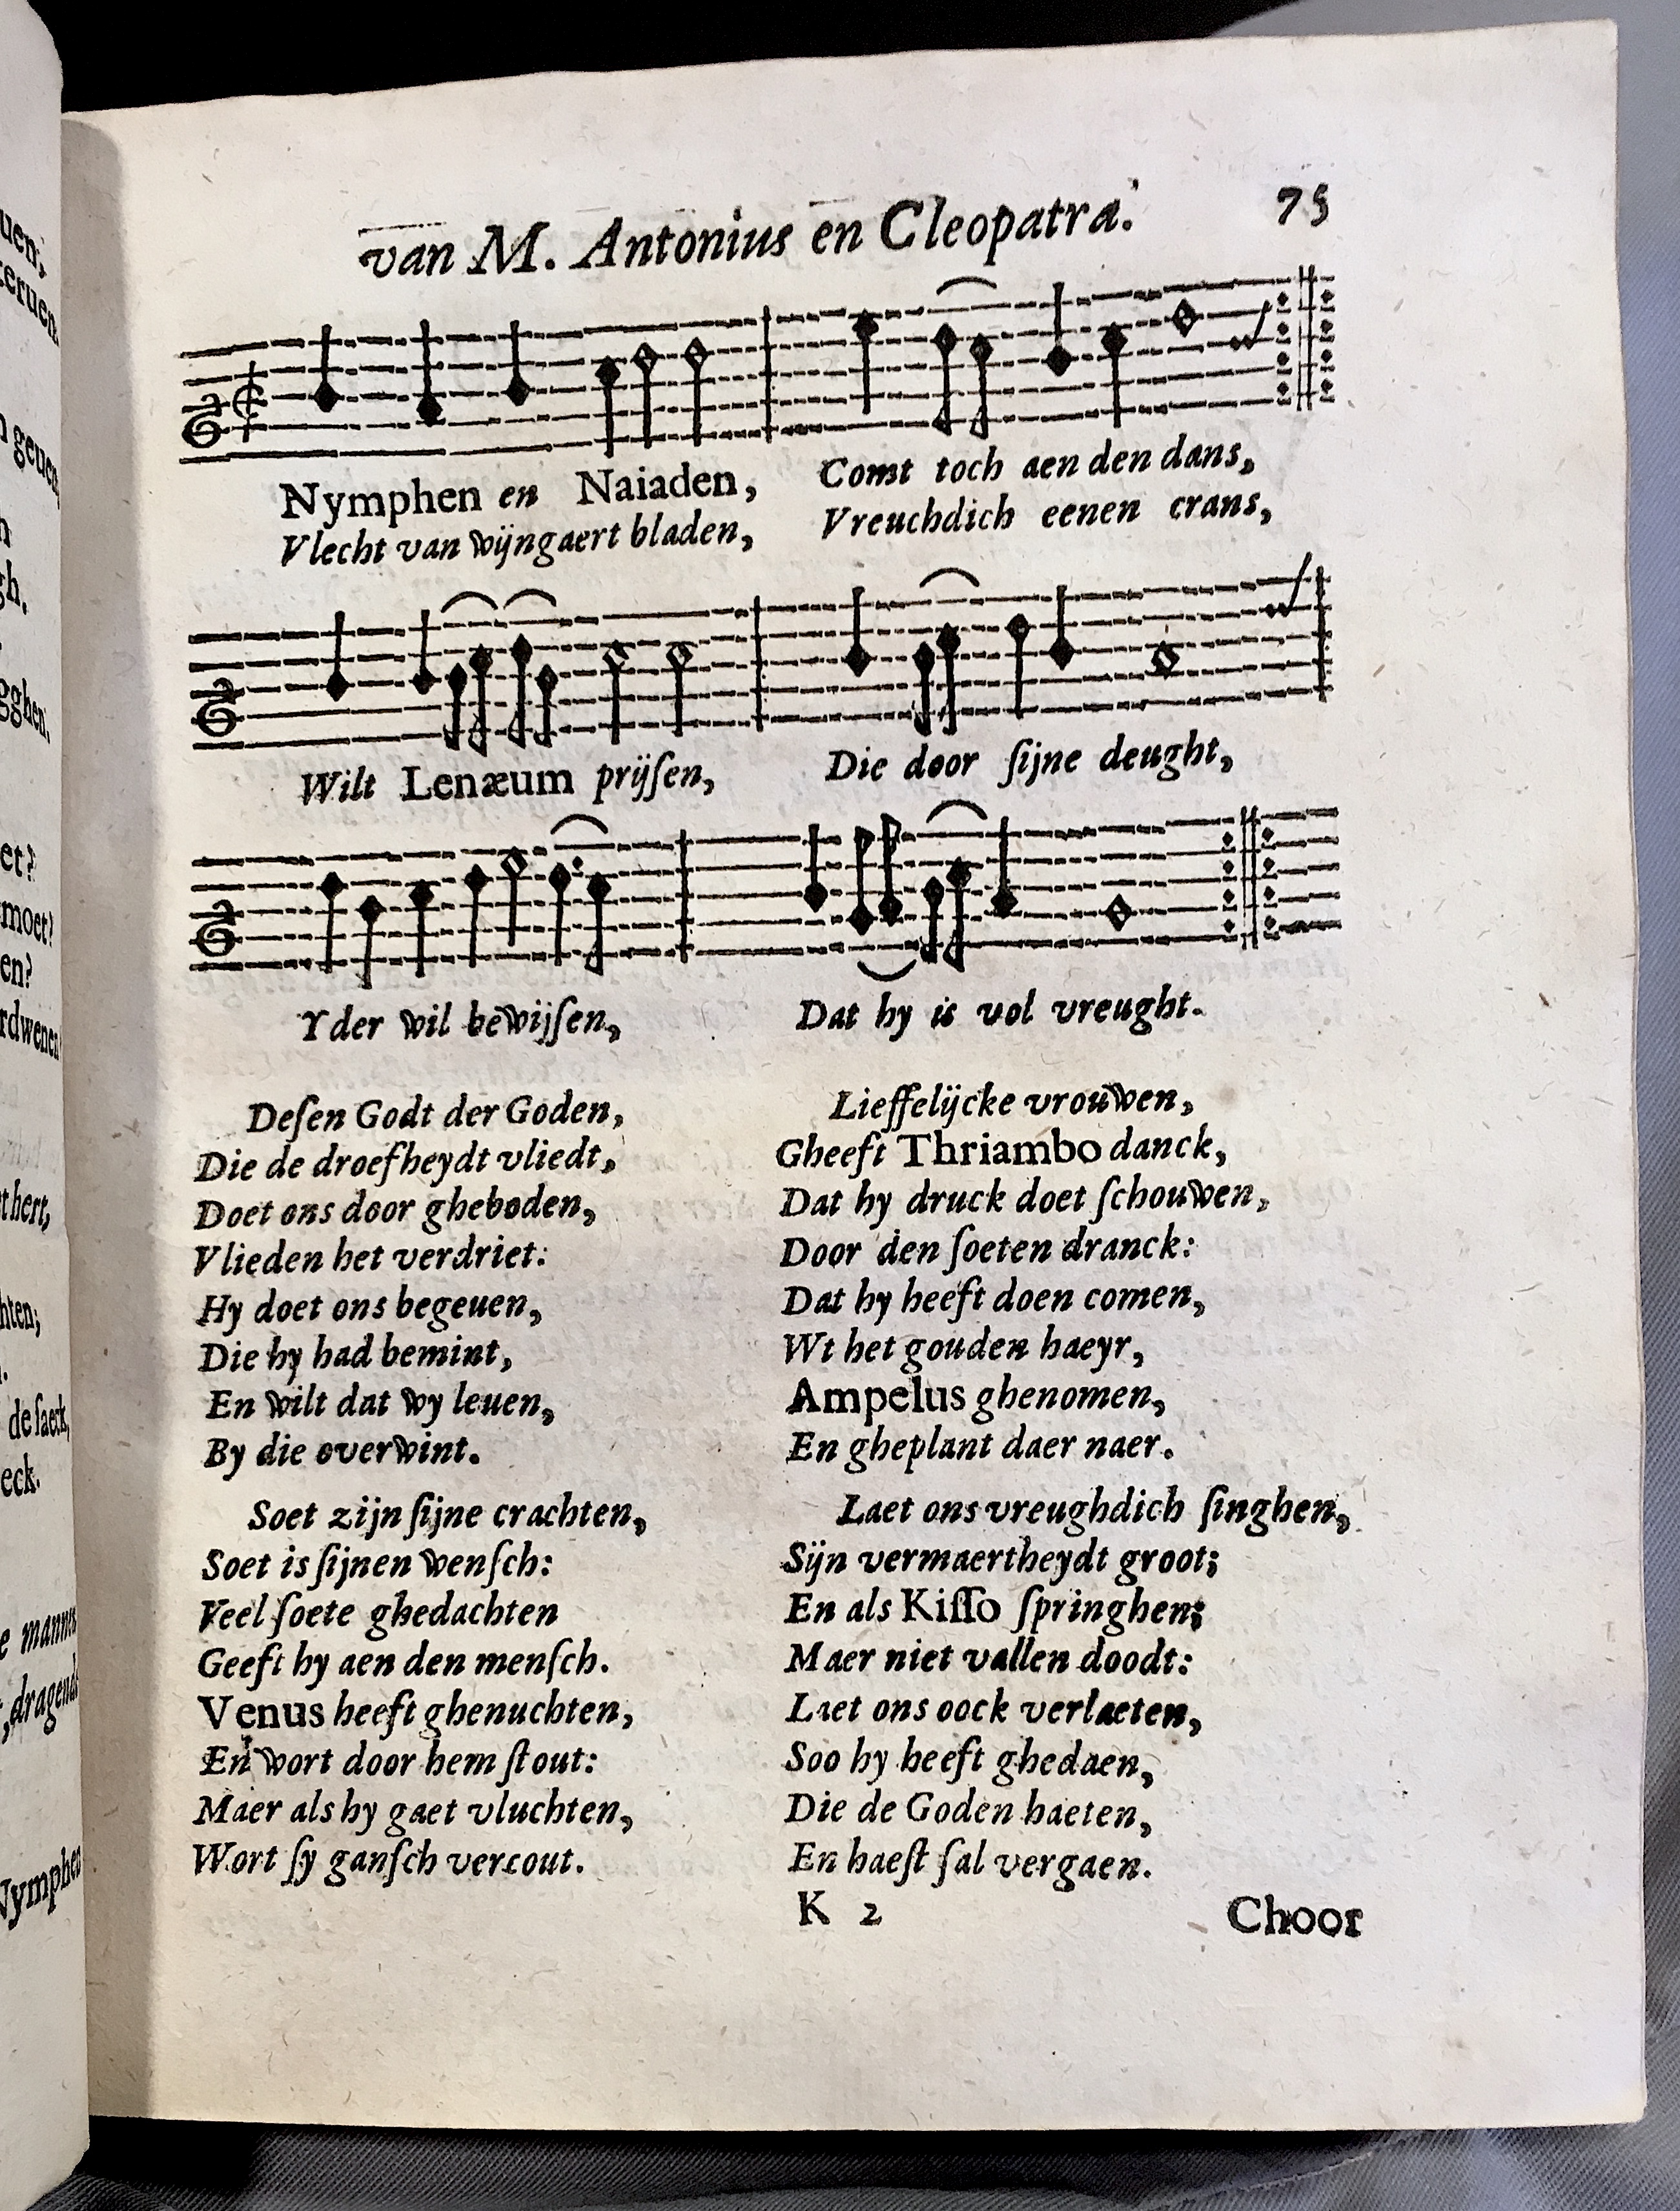 van M. Antonius en Cleopatra. 75
Nymphen en Naiaden, Comt toch aen den dans,
Vlecht van wijngaert bladen, Vreuchdich eenen crans,
Wilt Lenæum prijſen, Die door ſijne deught,
Yder wil bewijſen, Dat hy is vol vreught.
Deſen Godt der Goden,
Die de droefheydt vliedt,
Doet ons door gheboden,
Vlieden het verdriet:
Hy doet ons begeuen,
Die hy had bemint,
En wilt dat wy leuen,
By die overwint.
Soet zijn ſijne crachten,
Soet is ſijnen wenſch:
Veel ſoete ghedachten
Geeft hy aen den menſch.
Venus heeft ghenuchten,
En wort door hem ſtout:
Maer als hy gaet vluchten,
Wort ſy ganſch vercout.
Lieffelijcke vrouwen,
Gheeft Thriambo danck,
Dat hy druck doet ſchouwen,
Door den ſoeten dranck:
Dat hy heeft doen comen,
Wt het gouden haeyr,
Ampelus ghenomen,
En gheplant daer naer.
Laet ons vreughdich ſinghen,
Sijn vermaertheydt groot;
En als Kiſſo ſpringhen;
Maer niet vallen doodt:
Laet ons oock verlaeten,
Soo hy heeft ghedaen,
Die de Goden haeten,
En haeſt ſal vergaen.
K 2 Choor
uen;
geuen
gh.
gghen.
et?
moet?
en?
rdwenen
t hert,
hten;
de ſaeck,
eck.
e mannen
, dragende
Nymphen